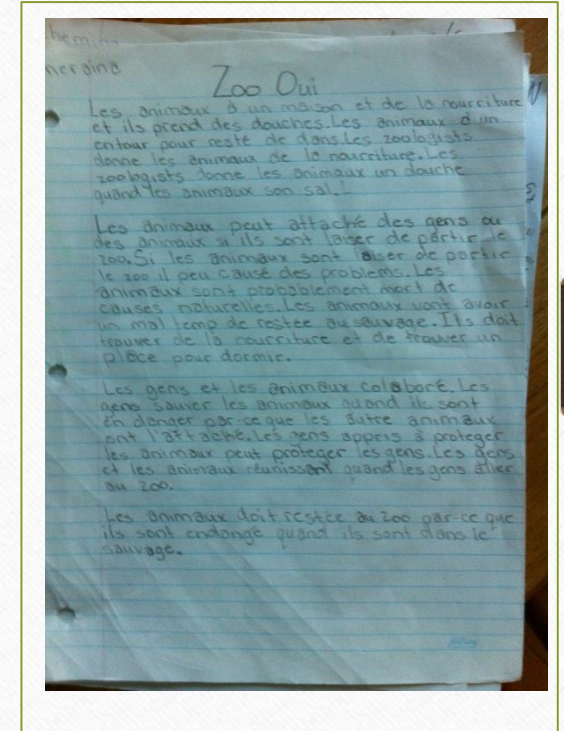 Zoo Oui
Les animaux à un maison et de la nourriture
et ils prend des douches. Les animaux à un
entour pour resté de dans. Les zoologists
donne les animaux de la nourriture. Les
zoologists donne les animaux un douche
quand les animaux son sal!
Les animaux peut attaché des gens ou
des animaux si ils sont laiser de partir le
zoo. Si les animaux sont laiser de partir
le zoo il peu causé des problems. Les
animaux sont probablement mort de
causes naturelles. Les animaux vont avoir
un mal temp de restée au sauvage. Ils doit
trouver de la nourriture et de trouver un
place pour dormir.
Les gens et les animaux colaboré. Les
gens sauver les animaux quand ils sont
en danger par-ce que les autre animaux
ont l'attaché. Les gens appris à proteger
les animaux peut proteger les gens. Les gens
et les animaux réunissent quand les gens aller
au zoo.
Les animaux doit restée au zoo par-ce que
ils sont endangé quand ils sont dans le
sauvage.